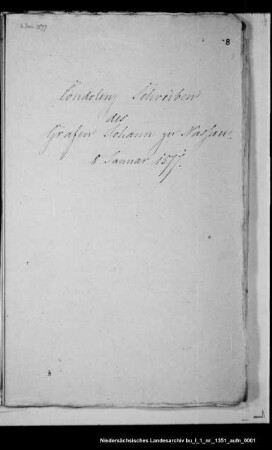 8
Condolenz Schreiben
des
Grafen Johann zu Nassau.
8 Januar 1577.
Niedersächsisches Landesarchiv bu_l_1_nr_1351_aufn_0001